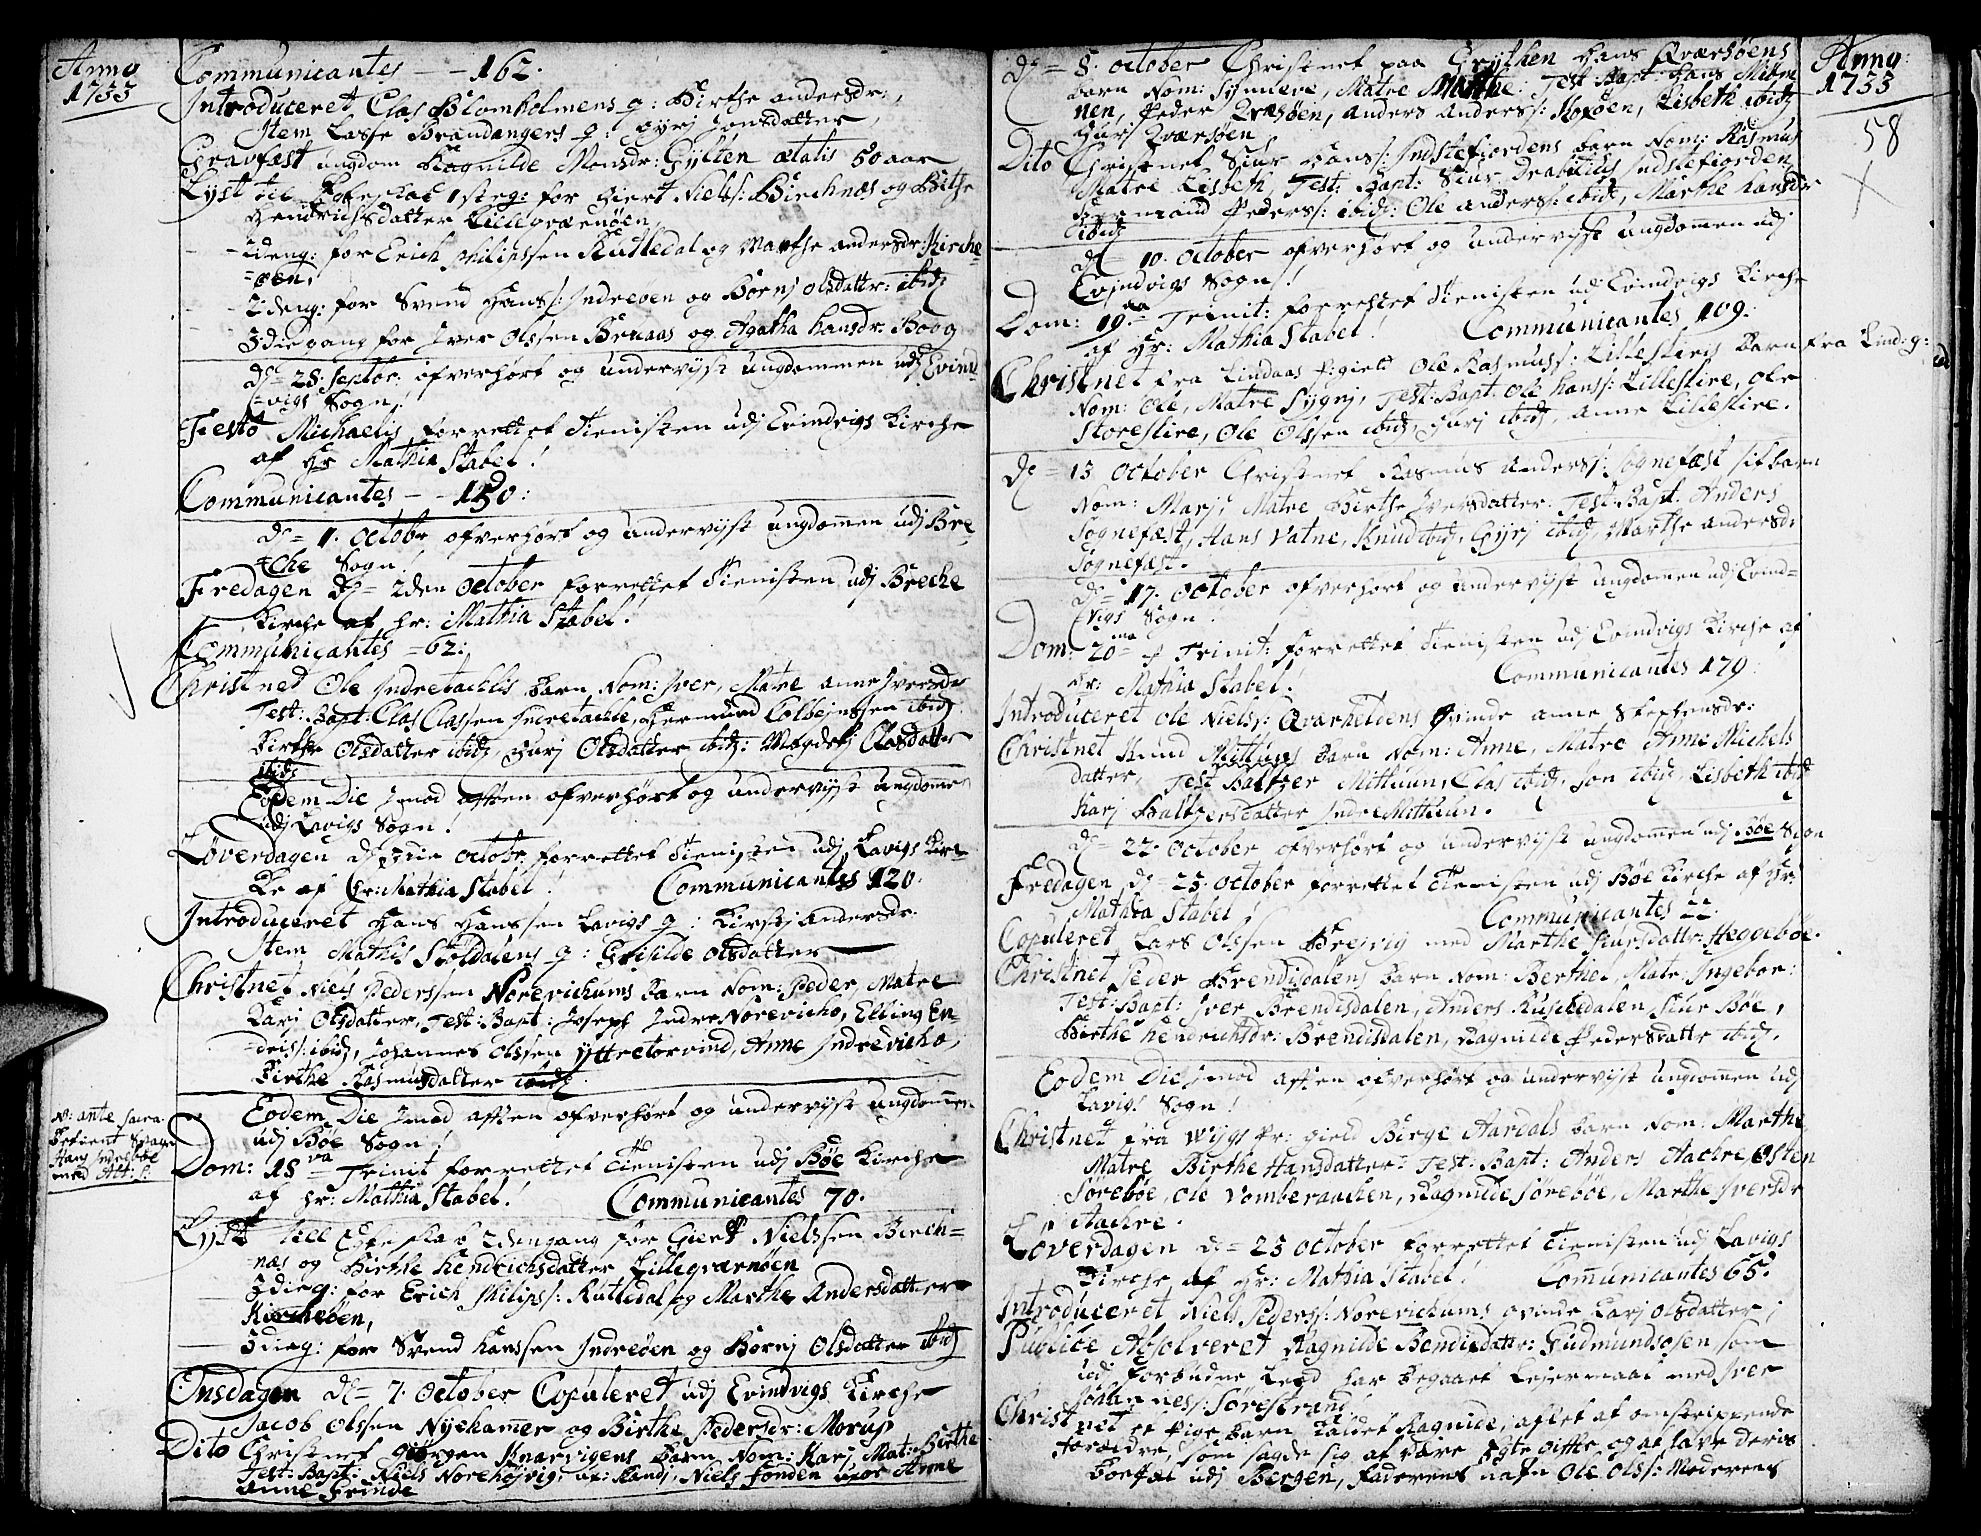 Anno
1733
Communicantes - - 162.
Introduceret Clas Blomholmens q: Birthe andersdr:,
Item Lasse Brandangers q: gyrj Jonsdatter,
Gravfæst ungdom Ragnilde Monsdr: Gylten ætatis 50 aar
Lyst til Egteskab 1ste g: for Giert Niels: Birchnæs og Birthe
Hendrichsdatter Lillegrærnøen,
- - 2deng: for Erich philipssen Rutledal og Marthe andersdr Kirche
=øen,
- - 2deng: for Svend Hans: Indreøen og Børnj olsdattr: ibid
- - 3die gang for Iver Olssen Bruaas og Agatha hansdr Boog
d= 28. septbr: ofverhørt og underviist ungdommen udj Evind
=vigs Sogn!
Festo Michaelis forrettet Tienisten udj Evindvigs Kirche
af Hr Mathia Stabel!
Communicantes - - 150:
d= 1. octobr ofverhørt og underviist ungdomen udj Bre
=che Sogn!
Fredagen d= 2den october forrettet Tienisten udj Breche
Kirche af hr: Mathia Stabel!
Communicantes =62:,
Christned Ole Indretachlis barn Nom: Iver, Matre anne Iversdr
Test: Bapt: Clas Classen Indretachle, Hermund Colbejnssen ibid,
Birthe Olsdatter ibid, gurj Olsdatter ibid: Magdelj Clasdatter
ibid
Eodem Die imod aften ofverhørt og underviist ungdomen
udj Lavigs Sogn!
Løverdagen d= 3die octobr forrettet Tienisten udj Lavigs Kir=
ke af hr: Mathia Stabel! Communicantes 120.
Introduceret Hans Hanssen Lavigs q: Kirstj andersdr.
Item Mathis Støldalens q: Grisilde olsdatter
Christnet Niels Pederssen Norevichums barn Nom: Peder, Matre
Karj Olsdatter, Test: Bapt: Joseph Indre Norevicho, Elling En=
dris: ibid, Johannes olssen yttretorvind, Anne Indrevicho,
Birthe Rasmusdatter ibid
Eodem Die imod aften ofverhørt og underviist ungdomen
udj Bøe Sogn!
N: ante sacra
betient
Hans Indrebøe
med Alt: S:
Dom: 18 va Trinit forrettet Tienisten udj Bøe Kirche
af hr: Mathia Stabel! Communicantes 70.
Lyst till Egteskab 2den gang for Giert Nielssen Birch=
næs og Birthe Hendrichsdatter Lillegrærnøen
3dieg: for Erich philips: Rutledal og Marthe Andersdatter
Kircheøen,
3dieg: for Svend hanssen Indreøen og Børnj Olsdatter ibid
Onsdagen d= 7. october Copuleret udj Evindvigs Kirche
Jacob Olssen Nyehamer og Birthe Pedersdr: Morup
Dito Christnet Knarvigens Barn Nom: Karj, Mat: Birthe
Test: Bapt: Niels Norehojvig Niels Anne
Anne
d= 8. october Christnet paa Grythen Hans Qværsøens
barn Nom: Synneve, Matre Marthe: Test: Bapt: Hans Mitu
nen, Peder Qværsøen, Anders Anders: Rossøen, Lisbeth ibid
Qværsøen
Anno:
1733
58
Dito Christnet Siur Hans: Indstefiordens barn Nom: Rasmus
Matre Lisbeth, Test: Bapt: Siur Indstefiorden
Peders: ibid: Ole anders: ibid, Marthe hansdr
ibid
d= 10. october ofverhørt og underviist ungdommen udj
Evindvigs Sogn!
Dom: 19 na Trinit: forrettet Tienisten udj Evindvigs Kirche
af Hr: Mathia Stabel! Communicantes 109.
Christnet fra Lindaas Pgield Ole Rasmuss: Lillestiris Barn fra Lind: g:
Nom: Ole, Matre Sygnj, Test: Bapt: Ole hans: Lillestire, Ole
Storestire, Ole Olssen ibid, gurj ibid, Anne Lillestire.
d= 13 october Christnet Rasmus anders: Sognefæst sit barn
Nom: Marj, Matre Birthe Iversdatter. Test: Bapt: Anders
Sognefæst, Hans Vatne, Knud ibid, gyrj ibid, Marthe andersdr
Sognefæst.
d= 17. october ofverhørt og underviist ungdomen udj Evind=
vigs Sogn!
Dom: 20 ma p Trinit: forrettet Tienisten udj Evindvigs Kirche af
Hr: Mathia Stabel! Communicantes 179.
Introduceret ole Niels: Qvarheldens qvinde anne Steffensdr:
Christnet Knud Mithuns barn Nom: Anne, Matre Anne Michels
datter, Test Baltzer Mithuun, Clas ibid, Jon ibid, Lisbeth ibid
Karj Baltzersdatter Indre Mithuun.
d= 22. october ofverhørt og underviist ungdomen udj Bøe Sogn
Fredagen d= 23. october forrettet Tienisten udj Bøe Kirche af Hr:
Mathia Stabel! Communicantes 22.
Copuleret Lars Olssen Brejvig med Marthe Siursdattr: Heggebøe.
Christnet Peder Brendisdalens barn Nom: Berthel, Matr: Ingebor:
Test: Bapt: Iver Brendisdalen, Anders Rusledalen, Siur Bøe,
Birthe hendrichsdr: Brendisdalen, Ragnilde Pedersdatter ibid.
Eodem Die imod aften ofverhørt og underviist ungdomen udj
Lavigs Sogn!
Christnet fra Wiigs Pr: gield Birge Aardals barn Nom: Marthe
Matre Birthe Hansdatter: Test: Bapt: Anders Aachre, Osten
Sørebøe, Ole Vomberaachen, Ragnilde Sørebøe, Marthe Iversdr
Aachre.
Løverdagen d= 23 october forrettet Tienisten udj Lavigs
Kirche af Hr: Mathia Stabel! Communicantes 65.
Introduceret Niels Peders: Norevichums qvinde Karj olsdatter;
Publice Absolveret Ragnilde Bendixdattr: Gudmundsøsen, som
udi forbudne Leed har begaaet Lejermaal med Iver
Johannes: Sørestrand,
Christnet et Pige barn kaldet Ragnilde, aflet af omstrippende
foreldre, som sagde sig at være Egte gifte, og at have deris
boefæl udj Bergen, faderens nafn Ole Ols: Moderens